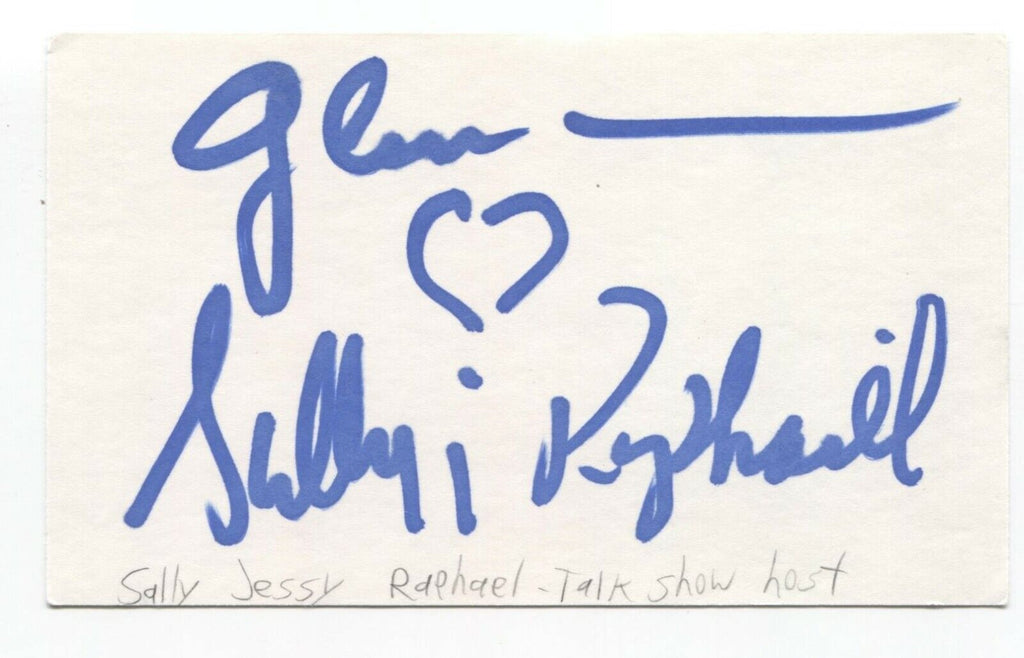 Glenn —
♡
Sally j Raphaël
Sally Jessy Raphael - Talk show host